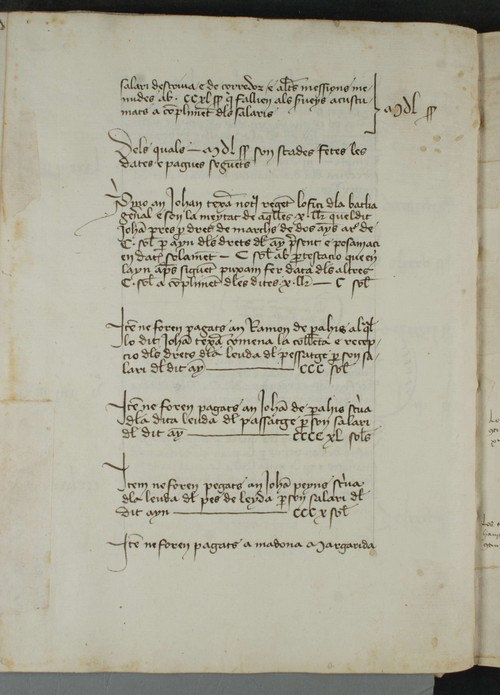 salari descriva e de corredor e alts messions me
nudes ab · CCxl ss q fallien als sueys acustu
mats a complimet dls salaris
Mdl ss
Dels quals — Mdl ss son stades fetes les
dates e pagues seguets
Pmo an Johan texa not reget lofici dla batlia
genal e son la meytat de aqlles x · llr queldit
Joha pres p dret de march de dos ays a de
C · sol p ayn dls drets dl ay psent e
en dat solamet — C sol ab ptestacio que en
layn aps seguet puxam fer data dls altres
C · sol a complimet dles dites x · llr — C sol
Ite ne foren pagats an Ramon de pahis alql
lo dit Joha texa comena la collita e recep
cio dls drets dla leuda dl pessatge p son sa
lari dl dit ay — CCC sol
Ite ne foren pagats an Joha de pahis scua
dla dita leuda dl passatge p son salari
dl dit ay — CCCC xl sols
Item ne foren pegats an Joha peyns scua
dla leuda dl pes de leyda p son salari dl
dit ayn — CCC x sol
Ite ne foren pagats a madona Margarida